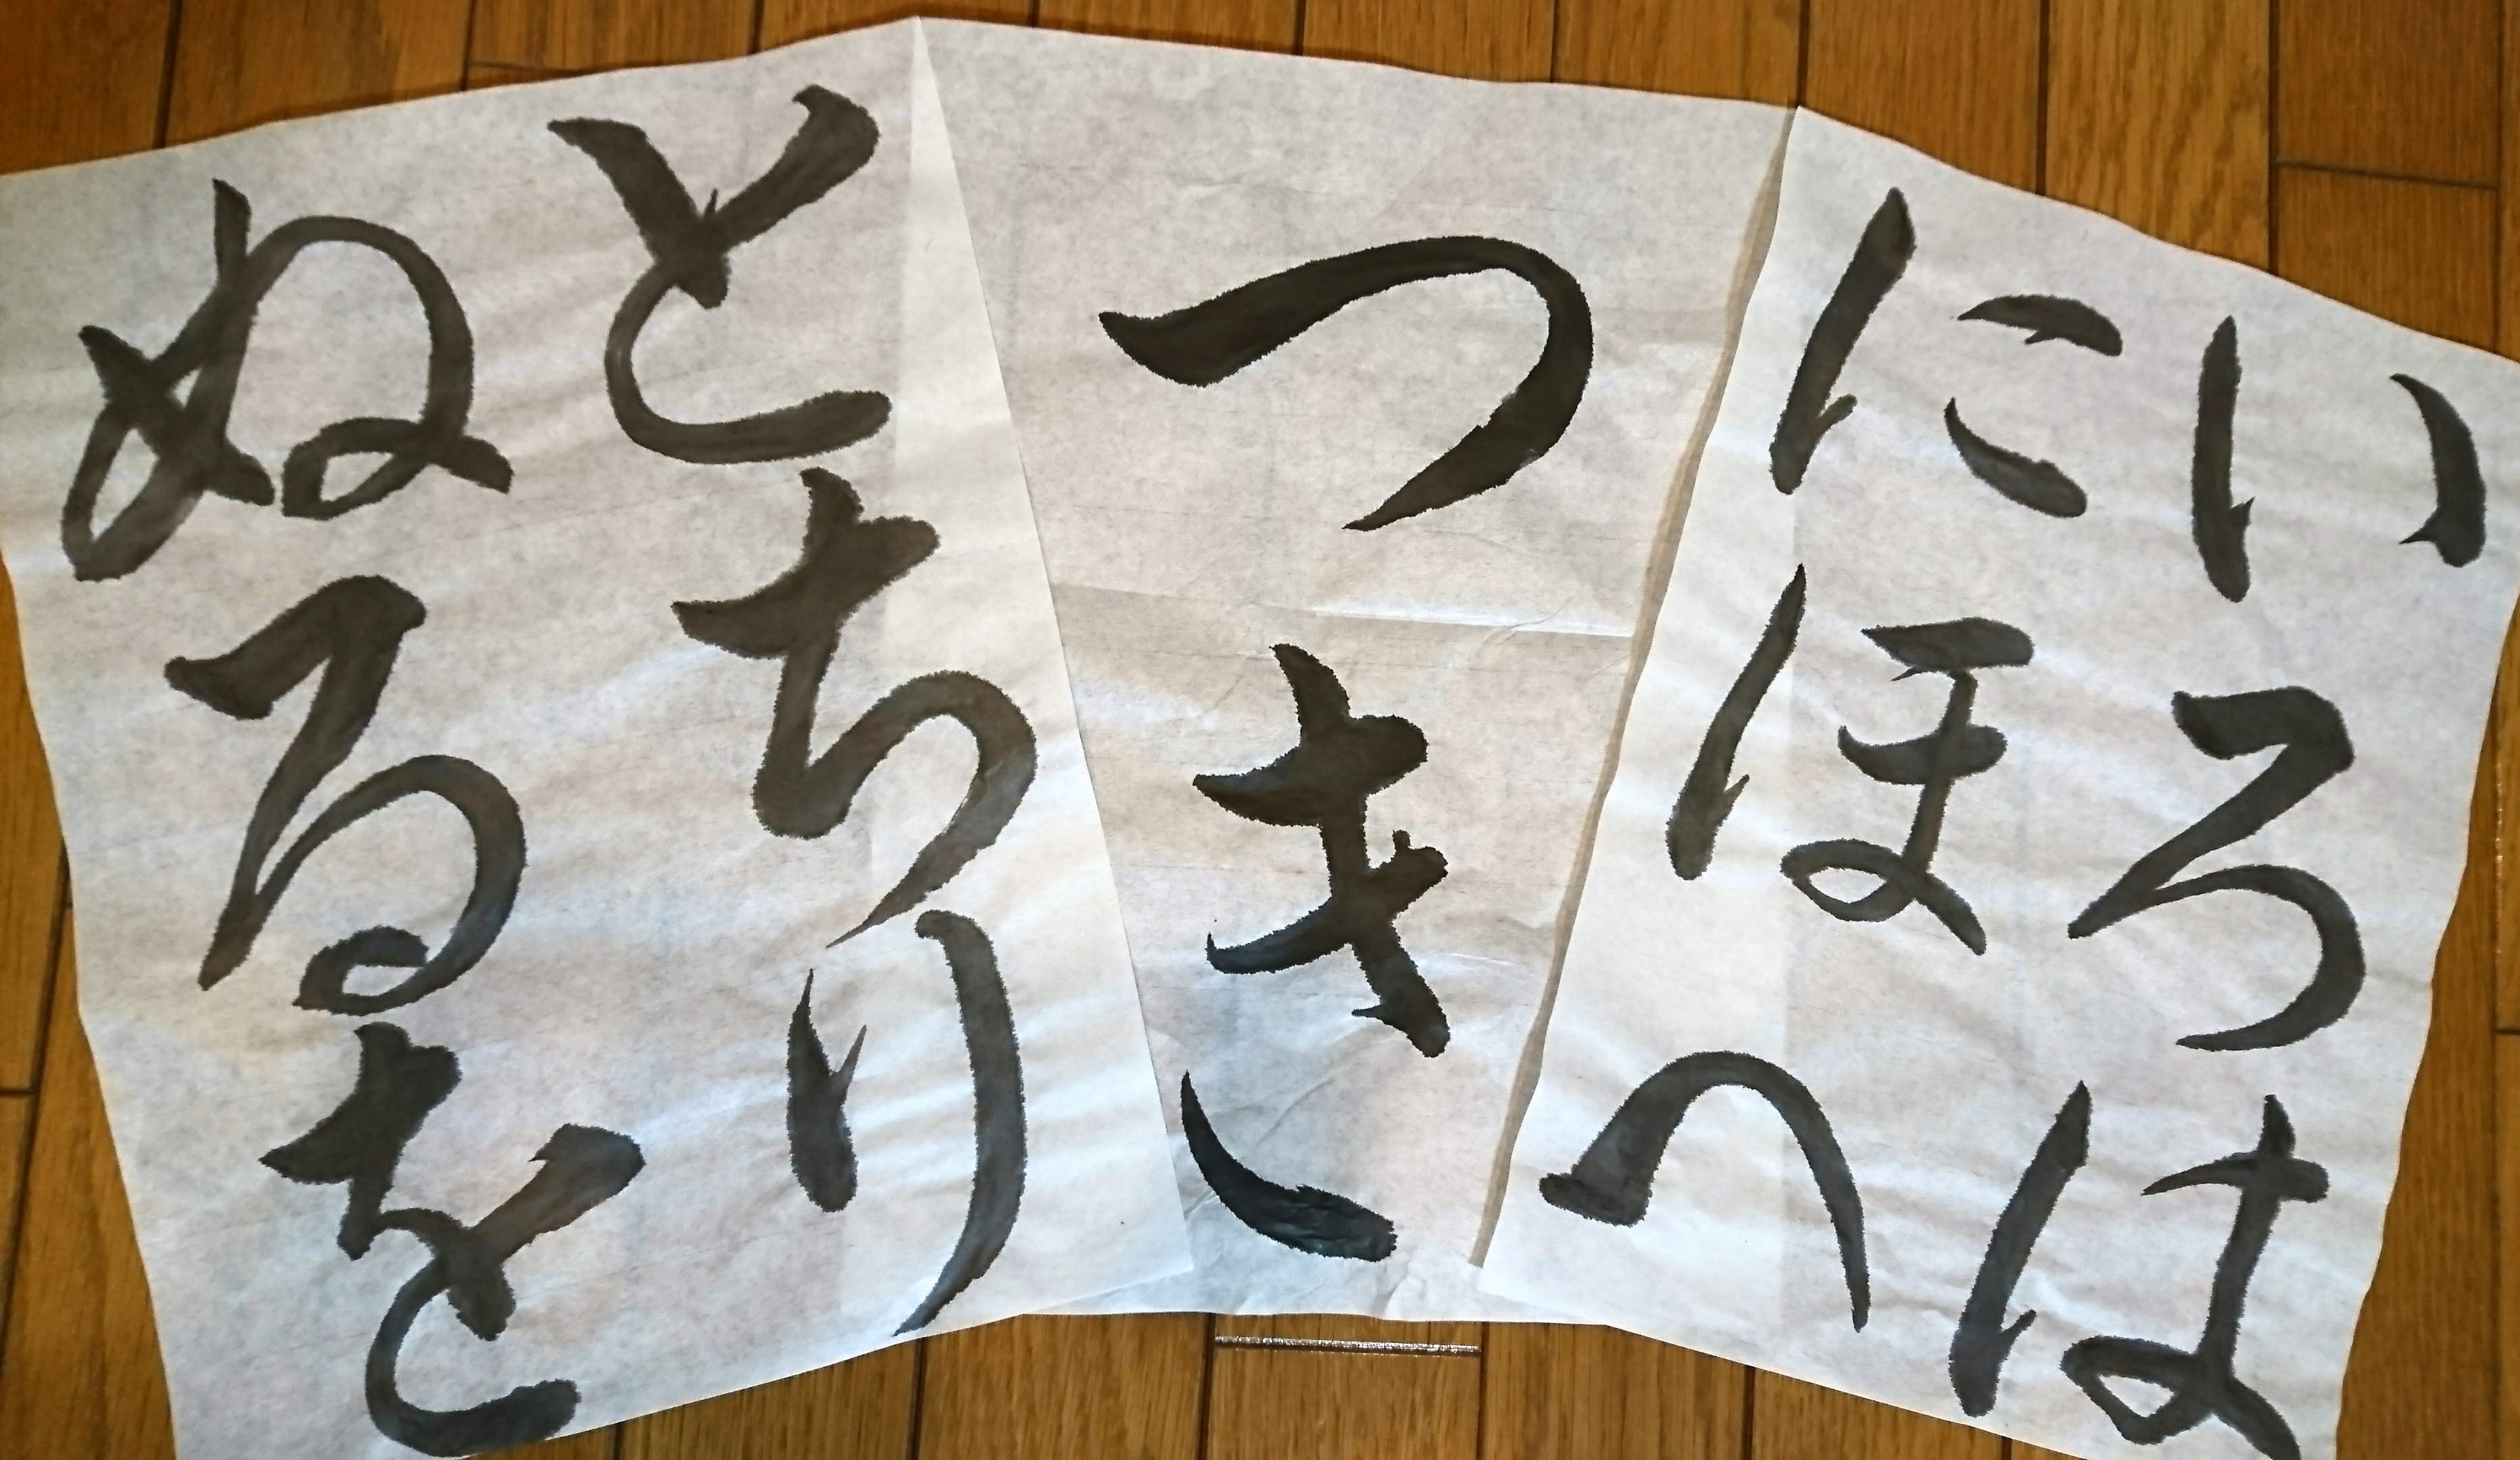 いろは
にほへ
つき
とちり
ぬるを